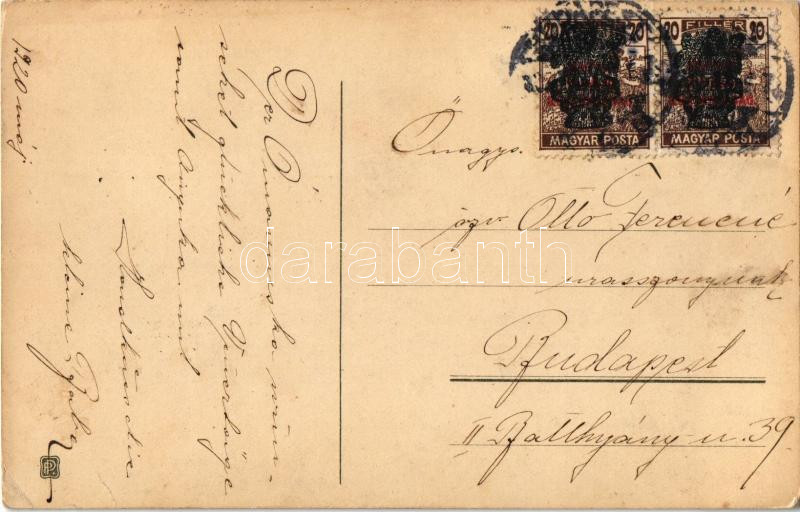 1920 máj
Der Omamuska wün-
schet glückliche
samt Anyuka mit
Handkuss die
kleine Baba
20 FILLER 20
MAGYAR POSTA
20 FILLER 20
MAGYAR POSTA
Őnagys.
özv. Otto Ferencné
urasszonynak
Budapest
II Batthyány u. 39
darabanth